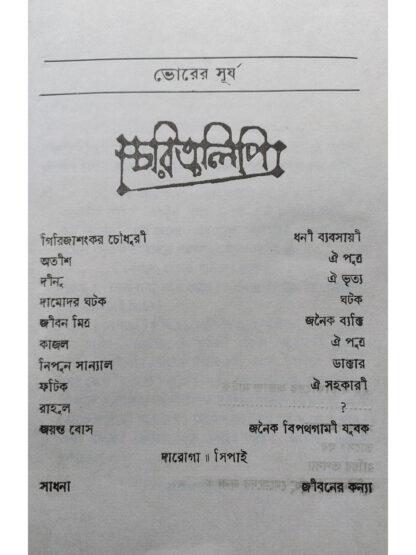 ভোরের সূর্য
চরিত্রলিপি
গিরিজাশংকর চৌধুরী ধনী ব্যবসায়ী
অতীশ ঐ পুত্র
দীনু ঐ ভৃত্য
দামোদর ঘটক ঘটক
জীবন মিত্র জনৈক ব্যক্তি
কাজল ঐ পুত্র
নিপুন সান্যাল ডাক্তার
ফটিক ঐ সহকারী
রাহুল ?
জয়ন্ত বোস জনৈক বিপথগামী যুবক
দারোগা ॥ সিপাই
সাধনা জীবনের কন্যা